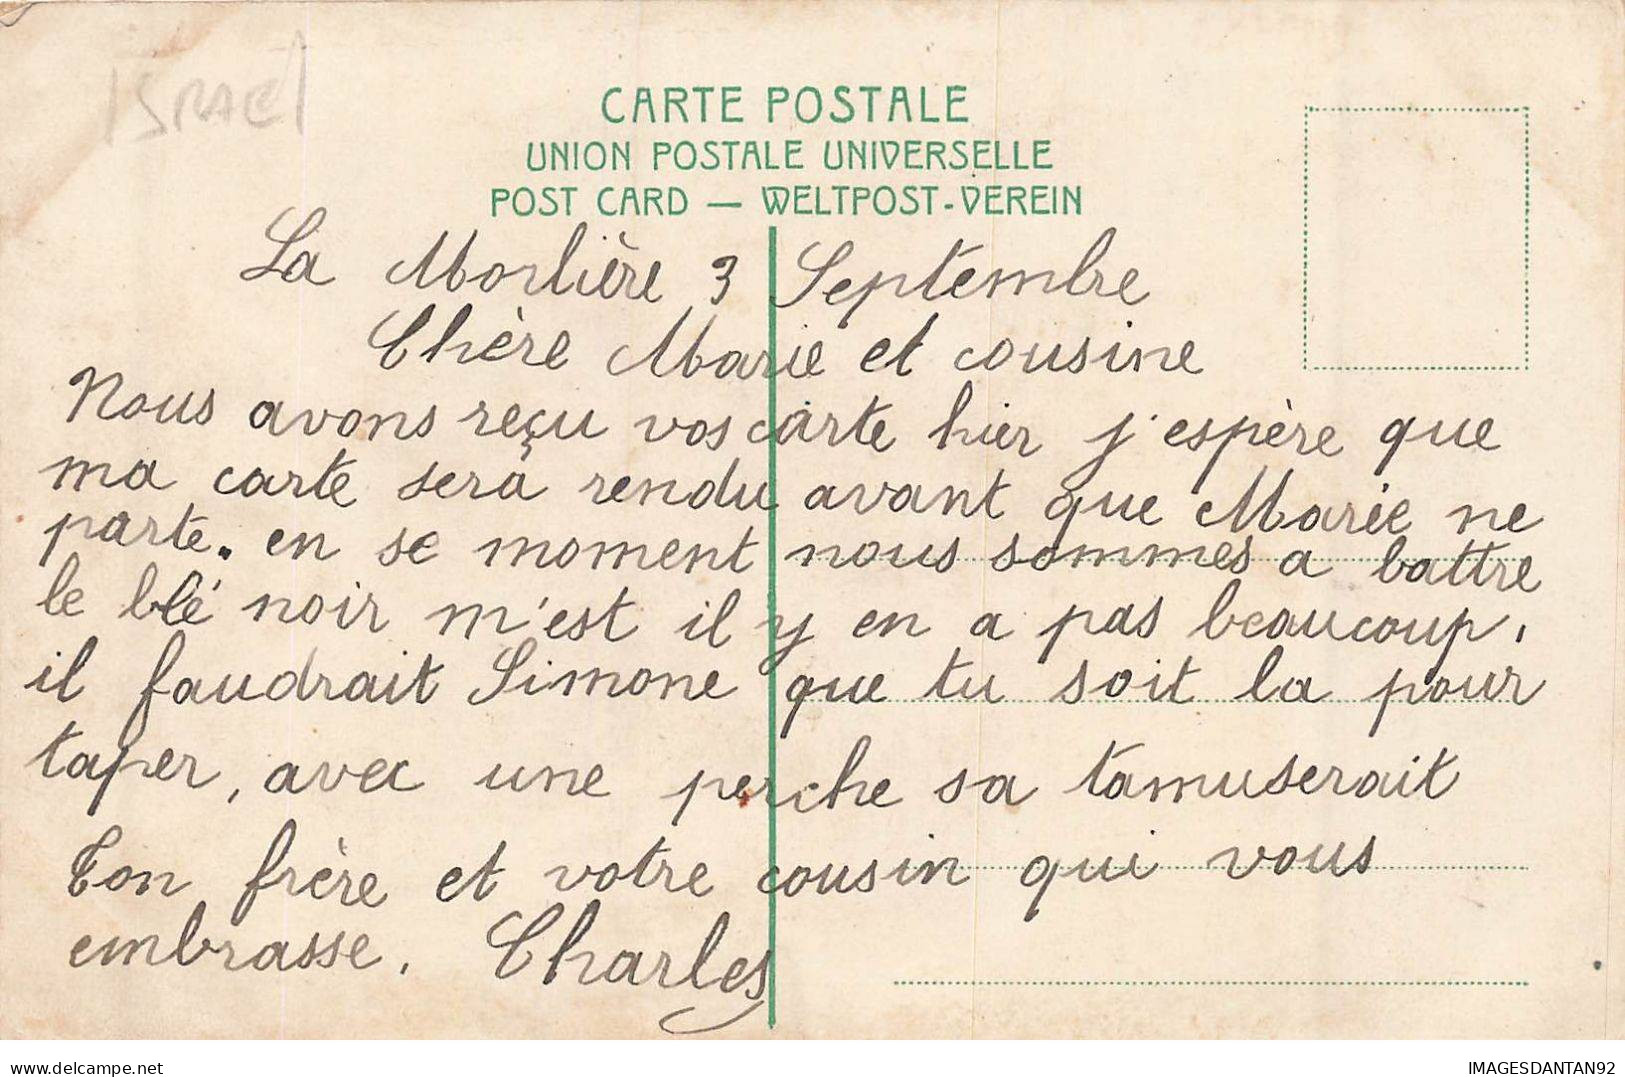 ISRAEL
CARTE POSTALE
UNION POSTALE UNIVERSELLE
POST CARD — WELTPOST-VEREIN
La Morlière 3 Septembre
Chère Marie et cousine
Nous avons reçu vos carte hier j'espère que
ma carte sera rendu avant que Marie ne
parte. en se moment nous sommes a battre
le blé noir m'est il y en a pas beaucoup.
il faudrait Simone que tu soit la pour
taper, avec une perche sa tamuserait
Ton frère et votre cousin qui vous
embrasse. Charles
IMAGESDANTAN92